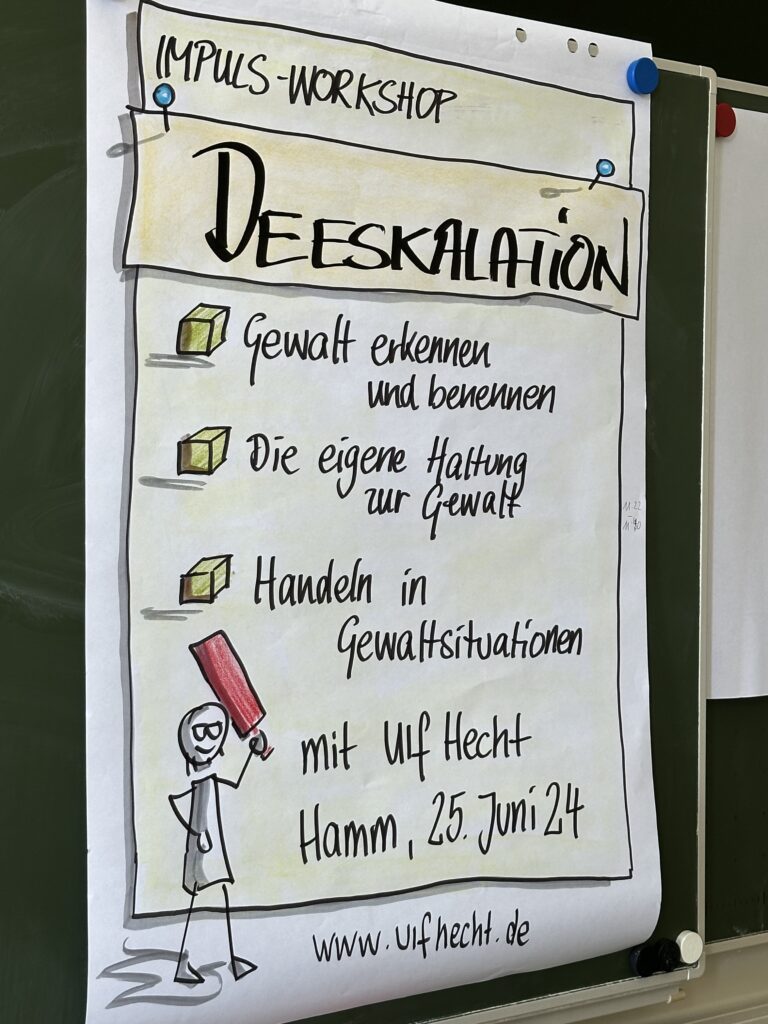 IMPULS-WORKSHOP
DEESKALATION
Gewalt erkennen
und benennen
Die eigene Haltung
zur Gewalt
Handeln in
Gewaltsituationen
mit Ulf Hecht
Hamm, 25. Juni 24
www.ulfhecht.de